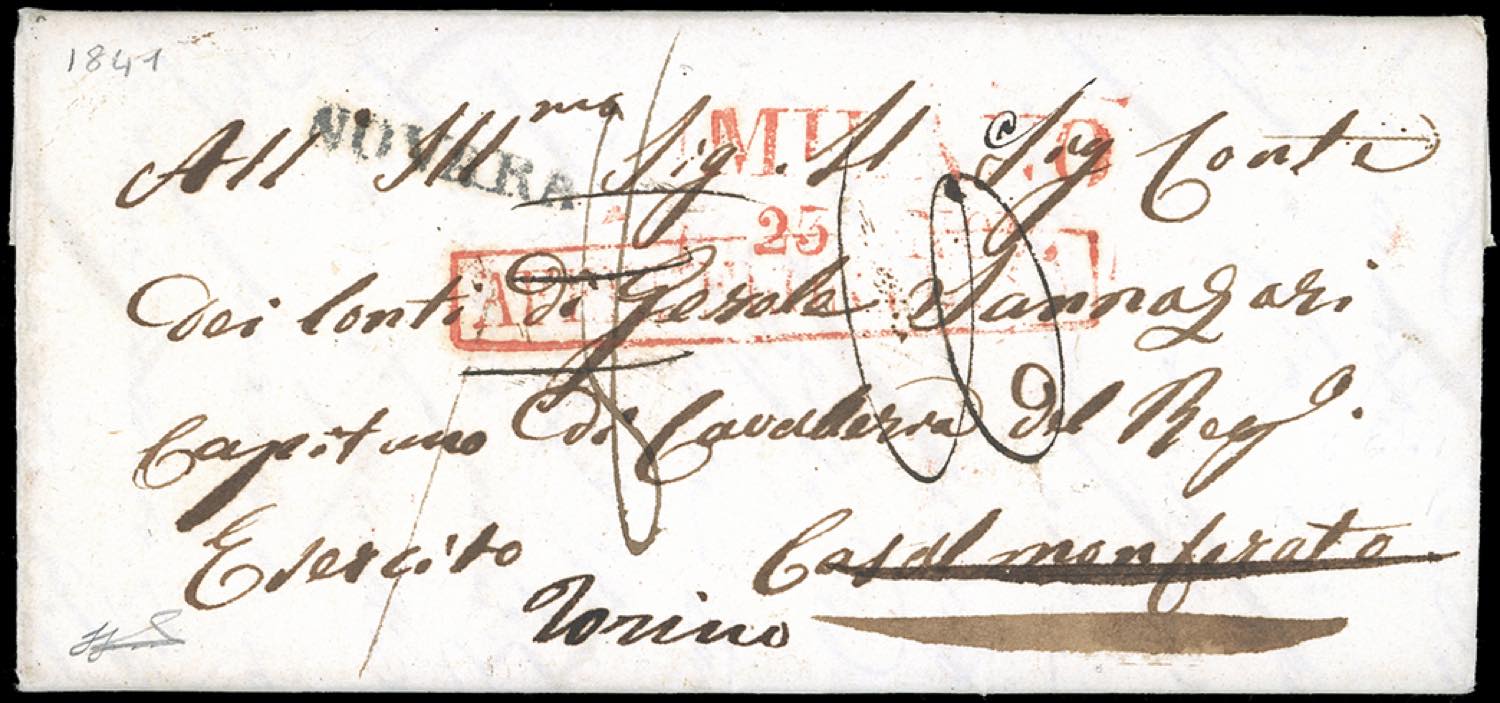 1841
NOVARA
MILANO
All Ill.mo Sig. Il Sig Conte
25
dei Conti di Gerola Sannazari
Capitano di Cavalleria del Reg.o
Esercito
Casal monferato
Torino